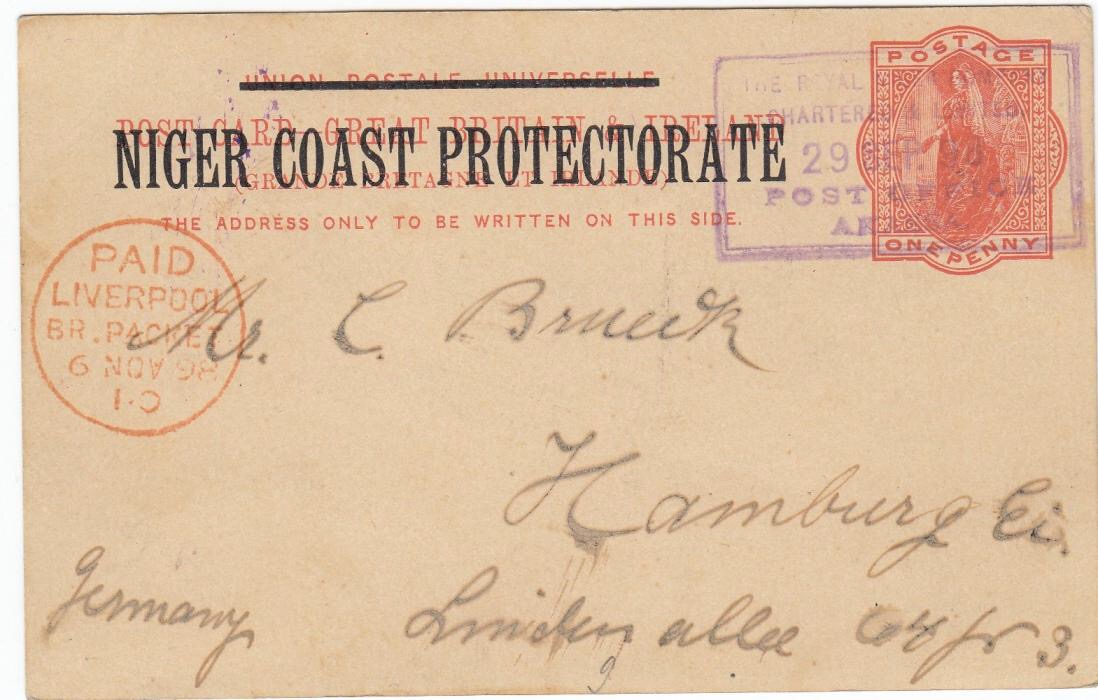 UNION POSTALE UNIVERSELLE
POST CARD – GREAT BRITAIN & IRELAND
NIGER COAST PROTECTORATE
(GRANDE BRETAGNE ET IRLANDE)
THE ADDRESS ONLY TO BE WRITTEN ON THIS SIDE.
THE ROYAL
CHARTERED
29
POST
POSTAGE
ONE PENNY
PAID
LIVERPOOL
BR. PACKET
6 NOV 98
Mr. C. Brueck
Hamburg Ei.
Germany
Lindenallee 3.